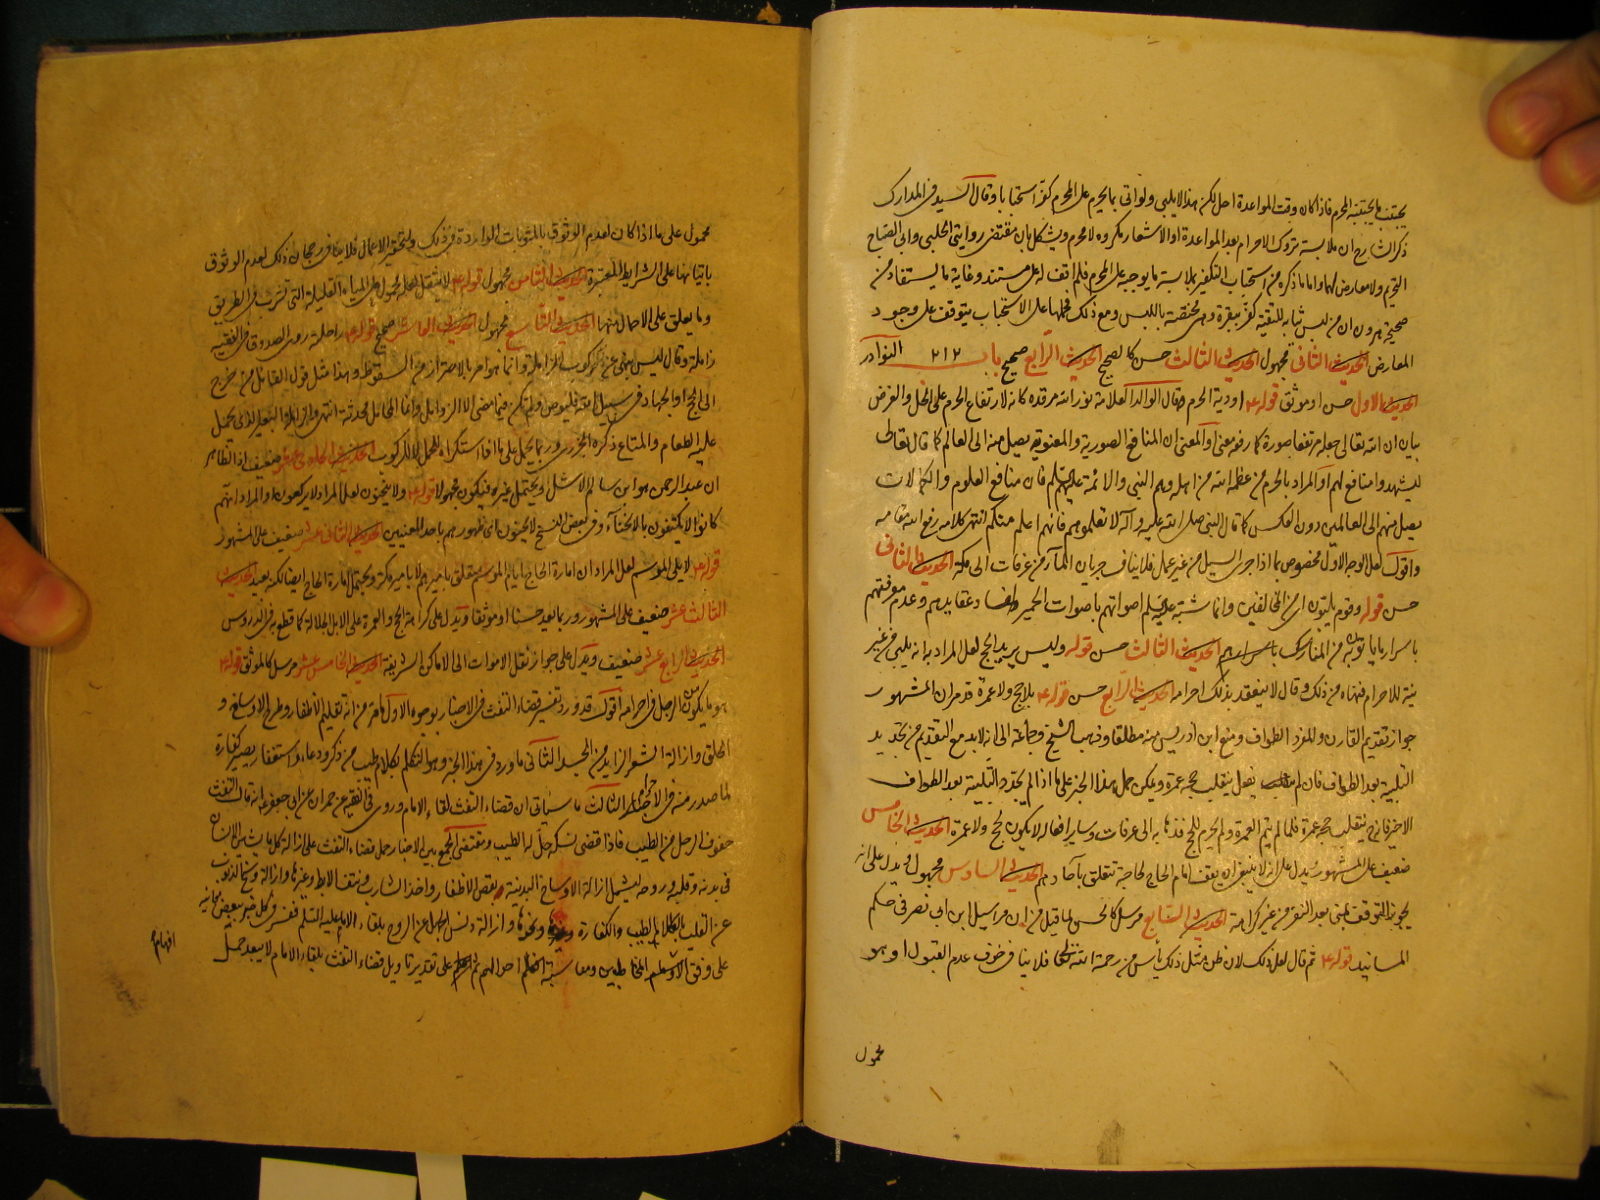 يجتنب ما يجتنبه المحرم فاذا كان وقت المواعدة احل لكن هذا لا يلبي ولو اتى بما يحرم على المحرم كفر استحبابا وقال السيد في المدارك
ذكر الشارح ان ملابسة تروك الاحرام بعد المواعدة او الاشعار مكروه لا محرم ويشكل بان مقتضى روايتي الحلبي وابي الصباح
التحريم ولا معارض لهما واما ما ذكره من استحباب التكفير بملابسة ما يوجبه على المحرم فلم اقف له على مستند وغاية ما يستفاد من
صحيحة هرون ان من لبس ثيابه للتقية كفر ببقرة وهي مختصة باللبس ومع ذلك فحملها على الاستحباب يتوقف على وجود
المعارض الحديث الثاني مجهول الحديث الثالث حسن كالصحيح الحديث الرابع صحيح باب ٢١٢ النوادر
الحديث الاول حسن او موثق قوله ع اودية الحرم وقال الوالد العلامة نور الله مرقده كانه لارتفاع الحرم على الحل والغرض
بيان ان الله تعالى جعله مرتفعا صورة كما رفعه معنى او المعنى ان المنافع الصورية والمعنوية يصل منه الى العالم كما قال تعالى
ليشهدوا منافع لهم او المراد بالحرم من عظمه الله من اهله وهم النبي والائمة عليهم السلم فان منافع العلوم والكمالات
يصل منهم الى العالمين دون العكس كما قال النبي صلى الله عليه وآله لا تعلموهم فانهم اعلم منكم انتهى كلامه رفع الله مقامه
واقول لعل الوجه الاول مخصوص بما اذا جرى السيل من غير عمل فلا ينافي جريان الماء من عرفات الى مكة الحديث الثاني
حسن قوله وقوم يلبون اي من المخالفين وانما شبه عليه السلم اصواتهم باصوات الحمير لفساد عقايدهم وعدم معرفتهم
باسرار ما ياتونه من المناسك الحديث الثالث حسن قوله وليس يريد الحج لعل المراد به انه يلبي من غير
نية للاحرام فنهاه من ذلك وقال لا ينعقد بذلك احرامه الحديث الرابع حسن قوله ع بلا حج ولا عمرة قد مر ان المشهور
جواز تقديم القارن والمفرد الطواف ومنع ابن ادريس منه مطلقا وذهب الشيخ وجماعة الى انه لا بد مع التقديم من تجديد
التلبية بعد الطواف فان لم يفعل ينقلب حجه عمرة ويمكن حمل هذا الخبر على ما اذا لم يجدد التلبية بعد الطواف
الاخير فانه ينقلب حجه عمرة فلما لم يتم العمرة ولم يحرم للحج فذهابه الى عرفات وساير افعاله لا يكون لحج ولا عمرة الحديث الخامس
ضعيف على المشهور ويدل على انه لا ينبغي ان يقف امام الحاج لحاجة تتعلق بآحادهم الحديث السادس مجهول ويدل على انه
يجوز التوقف بمنى بعد النفر من غير كراهة الحديث السابع مرسل كالحسن لما قيل من ان مراسيل ابن ابي نصر في حكم
المسانيد قوله ع ثم قال لعل ذلك لان ظن مثل ذلك يأس من رحمة الله تعالى فلا ينافي خوف عدم القبول او هو
محمول
محمول على ما اذا كان لعدم الوثوق بالمثوبات الواردة في ذلك ولتحقير الاعمال فلا ينافي رجحان ذلك لعدم الوثوق
باتيانها على الشرايط المعتبرة الحديث الثامن مجهول قوله ع لا يثقل لعله محمول على المياه القليلة التي تشرب في الطريق
وما يعلق على الاحمال منها الحديث التاسع مجهول الحديث العاشر صحيح قوله ع راحلته روى الصدوق في الفقيه
زاملة وقال ليس بنهي عن ركوب الزاملة وانما هو امر بالاحتراز من السقوط وهذا مثل قول القائل من خرج
الى الحج او الجهاد في سبيل الله فليوص ولم تكن فيما مضى الا الزوامل وانما المحامل محدثة انتهى والزاملة البعير الذي يحمل
عليه الطعام والمتاع ذكره الجزري وربما يحمل على ما اذا استكراه للحمل لا للركوب الحديث الحادي عشر ضعيف اذ الظاهر
ان عبد الرحمن هو ابن سالم الاشل ويحتمل غيره فيكون مجهولا قوله ع ولا ينحنون لعل المراد لا يركعون والمراد انهم
كانوا لا يكتفون بالانحناء وفي بعض النسخ لا يحنون اي ظهورهم باحد المعنيين الحديث الثاني عشر ضعيف على المشهور
قوله ع لا يلي الموسم لعل المراد ان امارة الحاج ايام الموسم يتعلق باميرهم لا بامير مكة ويحتمل امارة الحاج ايضا لكنه بعيد الحديث
الثالث عشر ضعيف على المشهور وربما يعد حسنا او موثقا ويدل على كراهة الحج والعمرة على الابل الجلالة كما قطع به في الدروس
الحديث الرابع عشر ضعيف ويدل على جواز نقل الاموات الى الاماكن الشريفة الحديث الخامس عشر مرسل كالموثق قوله ع
هو ما يكون من الرجل في احرامه اقول قد ورد تفسير قضاء التفث في الاخبار بوجوه الاول ما مر من انه تقليم الاظفار وطرح الاوساخ و
الحلق وازالة الشعر الزايد من الجسد الثاني ما ورد في هذا الخبر وهو التكلم بكلام طيب من ذكر ودعاء واستغفار يصير كفارة
لما صدر منه في الاحرام الثالث ما سياتي ان قضاء التفث لقاء الامام وروى في الفقيه عن حمران عن ابي جعفر ع انه قال التفث
حفوف الرجل من الطيب فاذا قضى نسكه حل له الطيب ومقتضى الجمع بين الاخبار حمل قضاء التفث على ازالة كل ما يشين الانسان
في بدنه وقلبه وروحه ليشمل ازالة الاوساخ البدنية بقص الاظفار واخذ الشارب ونتف الابط وغيرها وازالة وسخ الذنوب
عن القلب بالكلام الطيب والكفارة ونحوها وازالة دنس الجهل عن الروح بلقاء الامام عليه السلم ففسر في كل خبر ببعض معانيه
على وفق افهام المخاطبين ومناسبة احوالهم ثم على تقدير تاويل قضاء التفث بلقاء الامام لا يبعد حمل
افهام